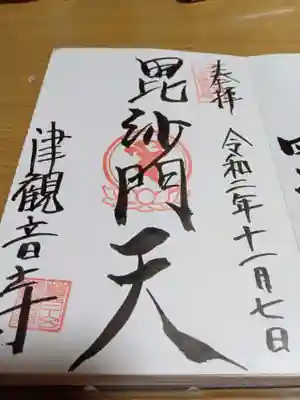 奉拝
令和二年十一月七日
毘沙門天
津観音寺